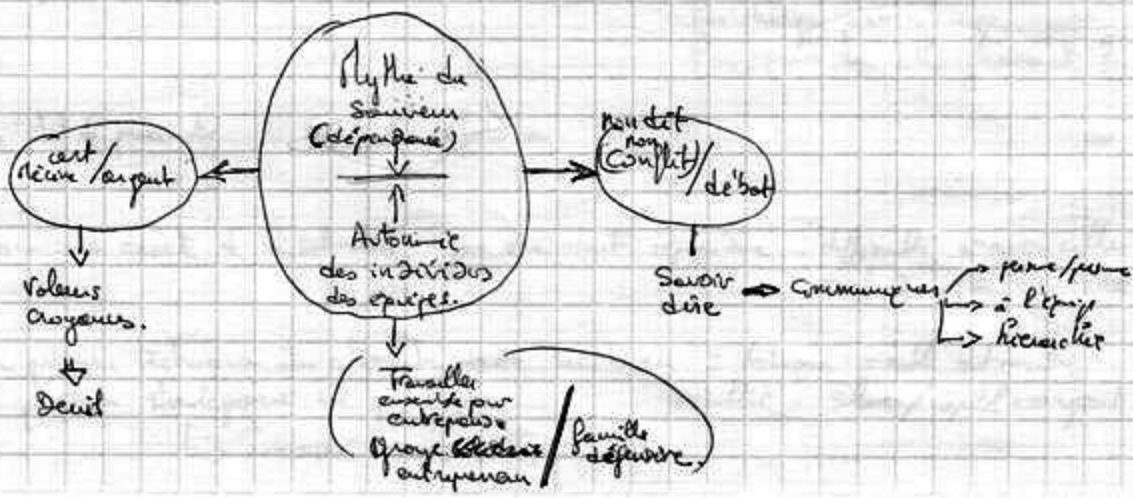 Mythe du
Sauveur
(dépendance)
Autonomie
des individus
des équipes.
/ argent
Valeurs
croyances.
Deuil
non dit
non
(conflit) /
débat
Savoir
dire
communiquer
à l'équipe
hiérarchie
Travailler
ensemble pour
entreprendre
Groupe
entreprenant
/ famille
défensive.